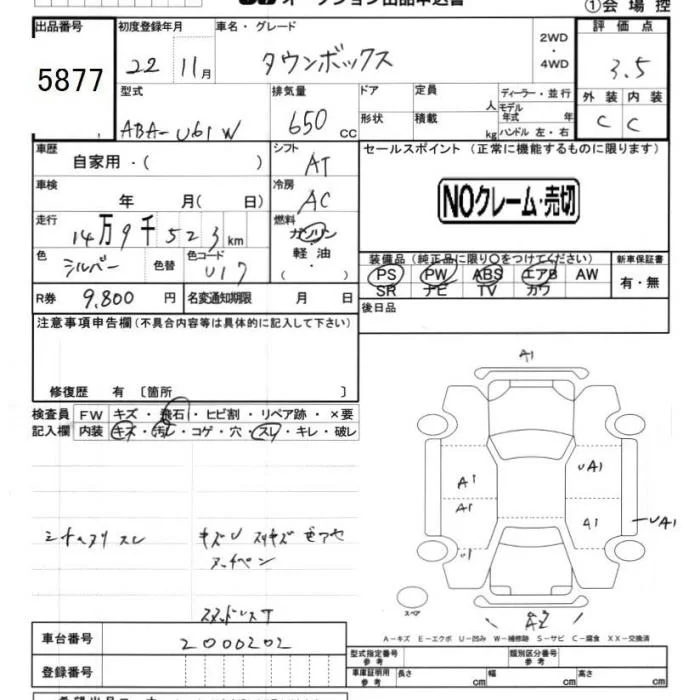 オークション出品申込書
①会場控
出品番号 初度登録年月 車名・グレード 評価点
5877 22 11月 タウンボックス 2WD ・ 4WD 3.5
型式 排気量 ドア 定員 ディーラー・並行 外装 内装
ABA-U61W 650 cc 形状 積載 人 kg モデル年式 年 ハンドル 左・右 C C
車歴 シフト セールスポイント(正常に機能するものに限ります)
自家用・( ) AT
車検 冷房 NOクレーム・売切
年 月( 日) AC
走行 燃料
14万9千523km ガソリン
色 色替 色コード 軽油 装備品(純正品に限り○をつけてください) 新車保証書
シルバー U17 ( ) PS PW ABS エアB AW 有・無
SR ナビ TV カワ
R券 9,800円 名変通知期限 月 日 後日品
注意事項申告欄(不具合内容等は具体的に記入して下さい)
A1
修復歴 有〔箇所 〕
検査員 FW キズ・飛石・ヒビ割・リペア跡・×要
記入欄 内装 キズ・汚レ・コゲ・穴・スレ・キレ・破レ
A1 UA1
A1 A1 UA1
スレ キズU
U1
スペア
A2
A-キズ E-エクボ U-凹み W-補修跡 S-サビ C-腐食 XX-交換済
車台番号 2000202
型式指定番号 参考 類別区分番号 参考
登録番号 車庫証明用 参考 長さ cm 幅 cm 高さ cm